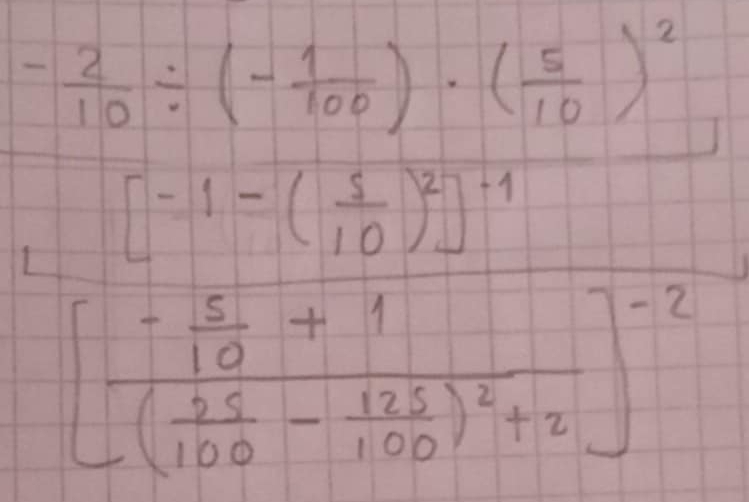 - 2/10 ÷ (- 1/100) · (5/10)²
[-1 - (5/10)²]⁻¹
[(- 5/10 + 1) / ((25/100 - 125/100)² + 2)]⁻²